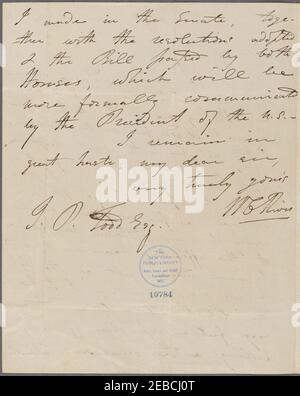 I made in the Senate, toge-
ther with the resolutions adopted
& the Bill passed by both
Houses, which will be
more formally communicated
by the President of the U.S.—
I remain in
great haste my dear sir,
very truly yours
W C Rives
J. P. Todd Esq.
THE
NEW YORK
PUBLIC LIBRARY
10784
alamy
Image ID: 2EBCJ0T
www.alamy.com